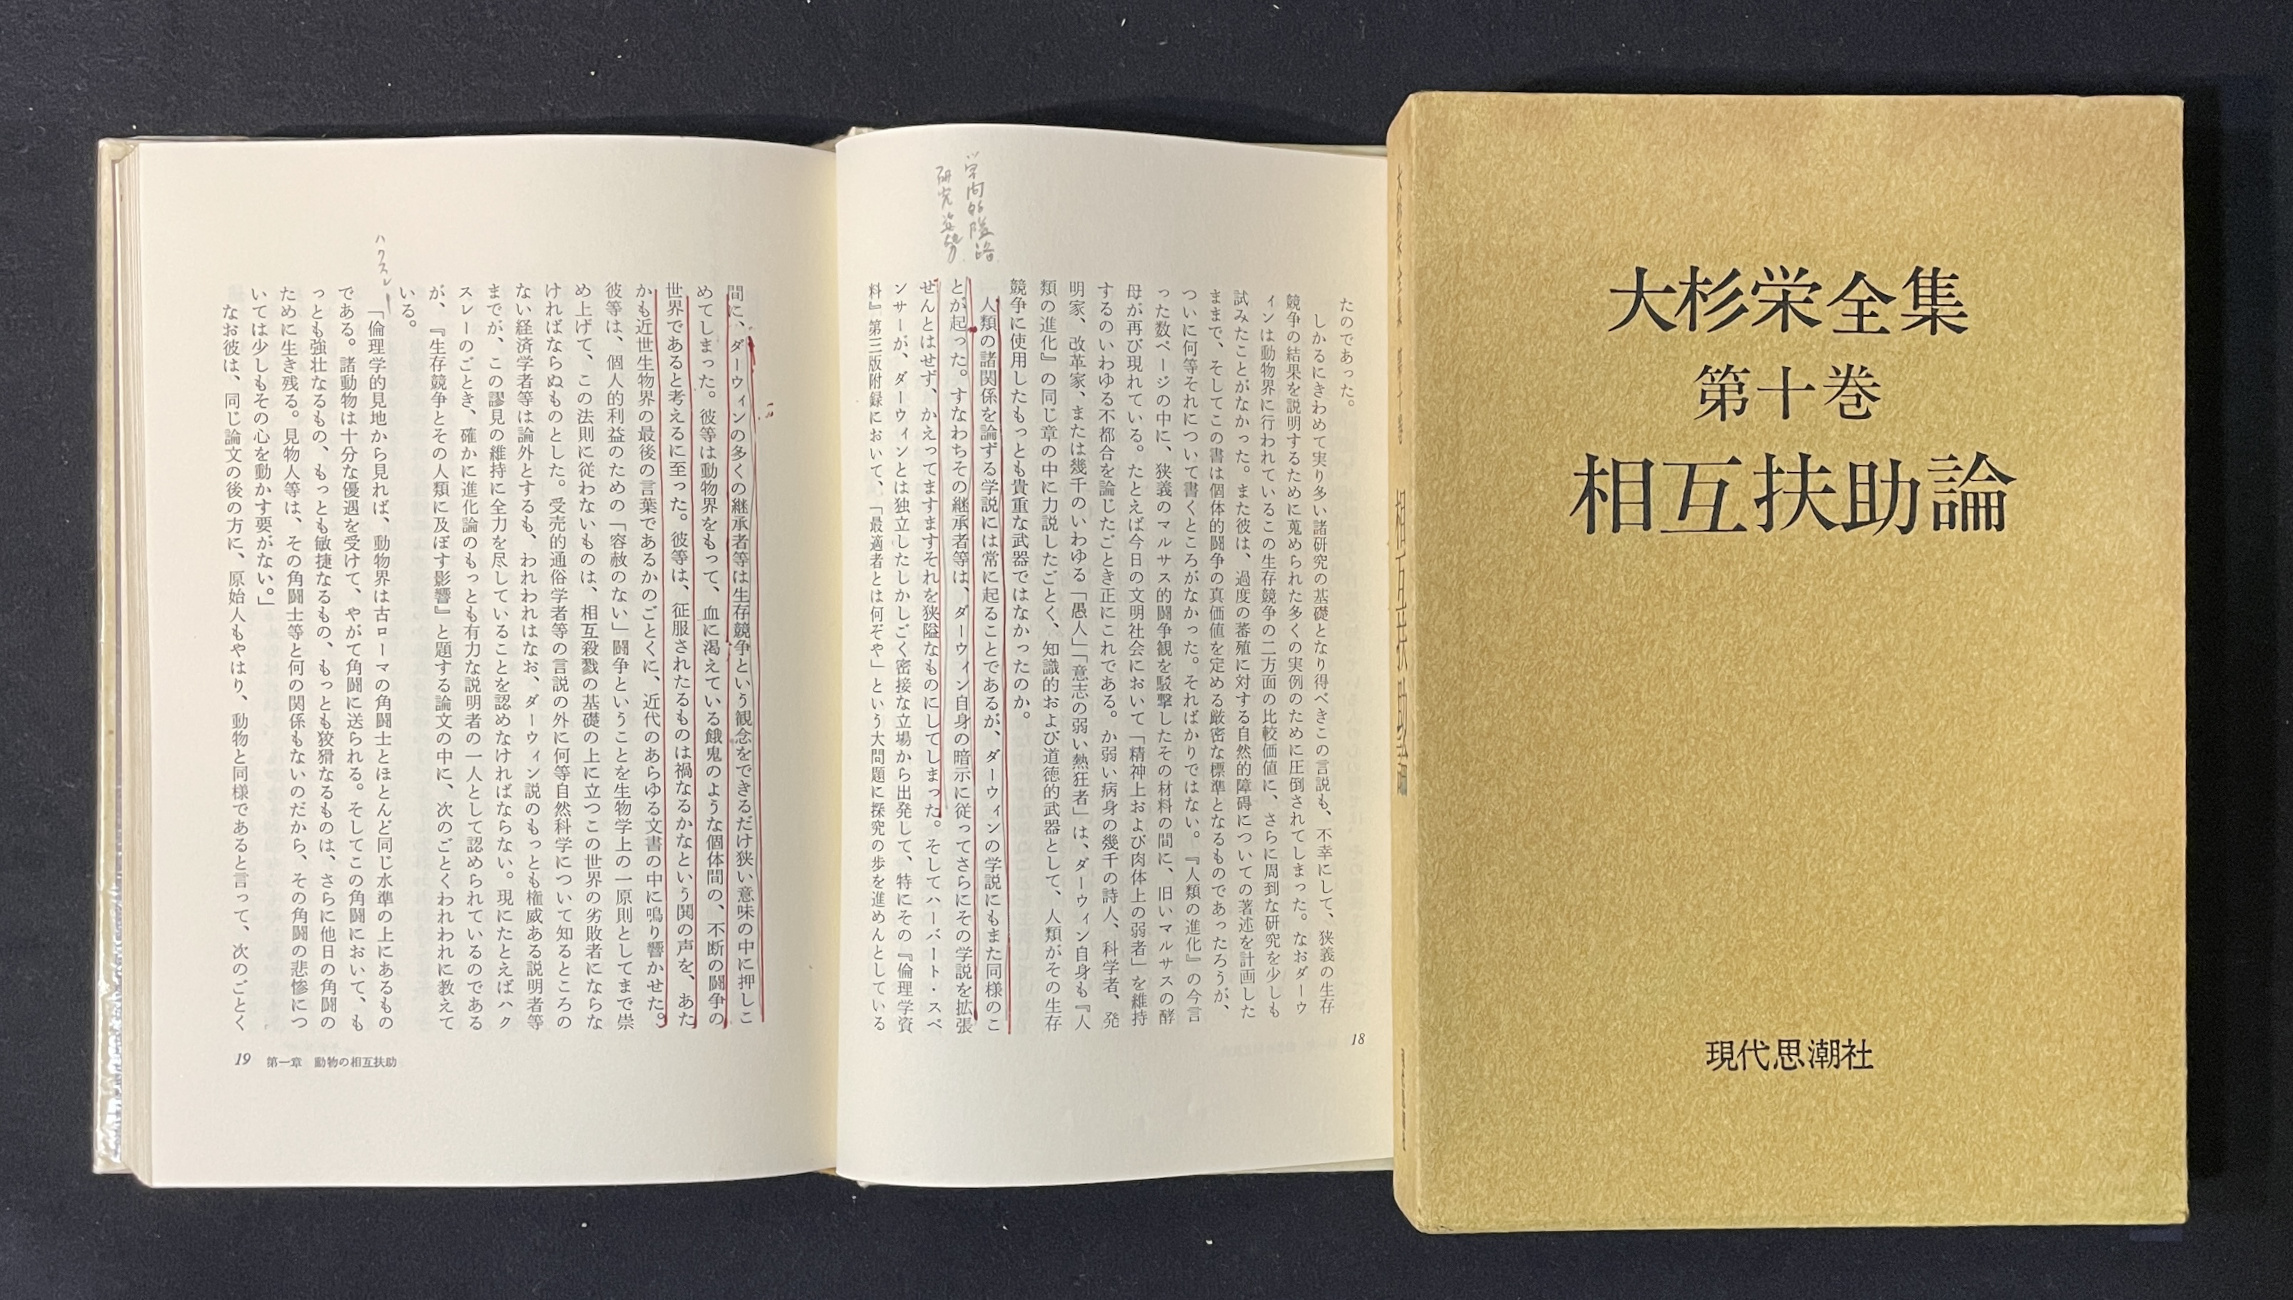 大杉栄全集
第十巻
相互扶助論
現代思潮社
大杉栄全集 第十巻 相互扶助論
現代思潮社
学問的隘路
研究姿勢
たのであった。
しかるにきわめて実り多い諸研究の基礎となり得べきこの言説も、不幸にして、狭義の生存
競争の結果を説明するために蒐められた多くの実例のために圧倒されてしまった。なおダーウ
ィンは動物界に行われているこの生存競争の二方面の比較価値に、さらに周到な研究を少しも
試みたことがなかった。また彼は、過度の蕃殖に対する自然的障碍についての著述を計画した
ままで、そしてこの書は個体的闘争の真価値を定める厳密な標準となるものであったろうが、
ついに何等それについて書くところがなかった。そればかりではない。『人類の進化』の今言
った数ページの中に、狭義のマルサス的闘争観を駁撃したその材料の間に、旧いマルサスの酵
母が再び現れている。たとえば今日の文明社会において「精神上および肉体上の弱者」を維持
するのいわゆる不都合を論じたごとき正にこれである。か弱い病身の幾千の詩人、科学者、発
明家、改革家、または幾千のいわゆる「愚人」「意志の弱い熱狂者」は、ダーウィン自身も『人
類の進化』の同じ章の中に力説したごとく、知識的および道徳的武器として、人類がその生存
競争に使用したもっとも貴重な武器ではなかったのか。
人類の諸関係を論ずる学説には常に起ることであるが、ダーウィンの学説にもまた同様のこ
とが起った。すなわちその継承者等は、ダーウィン自身の暗示に従ってさらにその学説を拡張
ぜんとはせず、かえってますますそれを狭隘なものにしてしまった。そしてハーバート・スペ
ンサーが、ダーウィンとは独立したしかしごく密接な立場から出発して、特にその『倫理学資
料』第三版附録において、「最適者とは何ぞや」という大問題に探究の歩を進めんとしている
18
間に、ダーウィンの多くの継承者等は生存競争という観念をできるだけ狭い意味の中に押しこ
めてしまった。彼等は動物界をもって、血に渇えている餓鬼のような個体間の、不断の闘争の
世界であると考えるに至った。彼等は、征服されたるものは禍なるかなという鬨の声を、あた
かも近世生物界の最後の言葉であるかのごとくに、近代のあらゆる文書の中に鳴り響かせた。
彼等は、個人的利益のための「容赦のない」闘争ということを生物学上の一原則としてまで崇
め上げて、この法則に従わないものは、相互殺戮の基礎の上に立つこの世界の劣敗者にならな
ければならぬものとした。受売的通俗学者等の言説の外に何等自然科学について知るところの
ない経済学者等は論外とするも、われわれはなお、ダーウィン説のもっとも権威ある説明者等
までが、この謬見の維持に全力を尽していることを認めなければならない。現にたとえばハク
スレーのごとき、確かに進化論のもっとも有力な説明者の一人として認められているのである
が、『生存競争とその人類に及ぼす影響』と題する論文の中に、次のごとくわれわれに教えて
いる。
ハクスレー
「倫理学的見地から見れば、動物界は古ローマの角闘士とほとんど同じ水準の上にあるもの
である。諸動物は十分な優遇を受けて、やがて角闘に送られる。そしてこの角闘において、も
っとも強壮なるもの、もっとも敏捷なるもの、もっとも狡猾なるものは、さらに他日の角闘の
ために生き残る。見物人等は、その角闘士等と何の関係もないのだから、その角闘の悲惨につ
いては少しもその心を動かす要がない。」
なお彼は、同じ論文の後の方に、原始人もやはり、動物と同様であると言って、次のごとく
19 第一章 動物の相互扶助